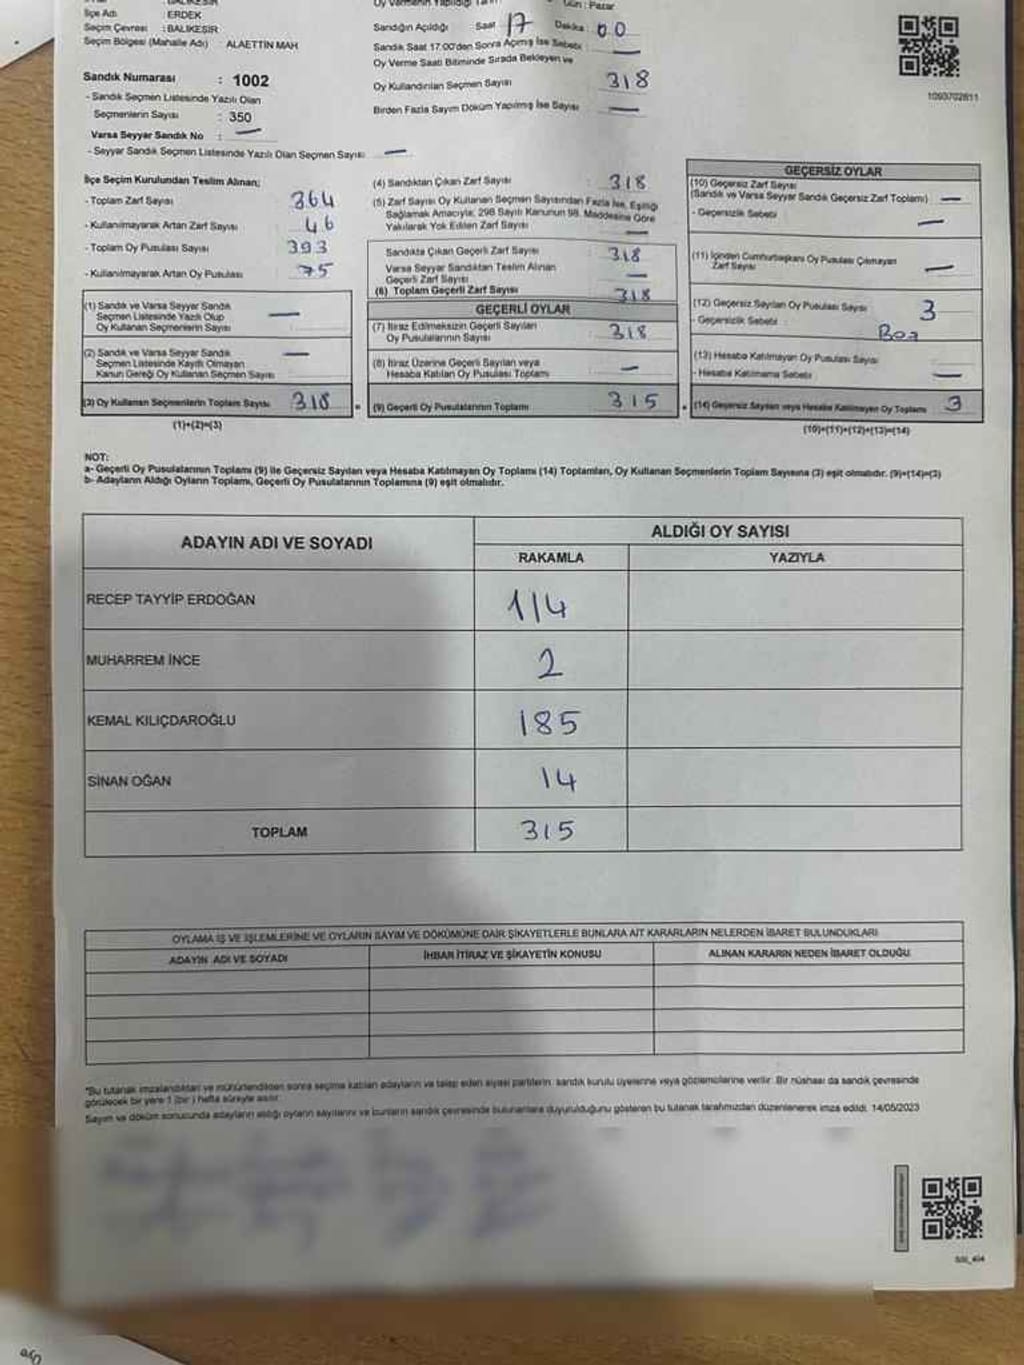 İlçe Adı : ERDEK
Seçim Çevresi : BALIKESİR
Seçim Bölgesi (Mahalle Adı) ALAETTİN MAH
Sandık Numarası : 1002
- Sandık Seçmen Listesinde Yazılı Olan
Seçmenlerin Sayısı : 350
Varsa Seyyar Sandık No : —
- Seyyar Sandık Seçmen Listesinde Yazılı Olan Seçmen Sayısı —
Gün : Pazar
Sandığın Açıldığı Saat 17 Dakika 00
Sandık Saat 17:00'den Sonra Açımış İse Sebebi —
Oy Verme Saati Bitiminde Sırada Bekleyen ve
Oy Kullandırılan Seçmen Sayısı 318
Birden Fazla Sayım Döküm Yapılmış İse Sayısı —
1093702811
İlçe Seçim Kurulundan Teslim Alınan;
- Toplam Zarf Sayısı 364
- Kullanılmayarak Artan Zarf Sayısı 46
- Toplam Oy Pusulası Sayısı 393
- Kullanılmayarak Artan Oy Pusulası 75
(1) Sandık ve Varsa Seyyar Sandık
Seçmen Listesinde Yazılı Olup
Oy Kullanan Seçmenlerin Sayısı —
(2) Sandık ve Varsa Seyyar Sandık
Seçmen Listesinde Kayıtlı Olmayan
Kanun Gereği Oy Kullanan Seçmen Sayısı —
(3) Oy Kullanan Seçmenlerin Toplam Sayısı 318
(1)+(2)=(3)
(4) Sandıktan Çıkan Zarf Sayısı : 318
(5) Zarf Sayısı Oy Kullanan Seçmen Sayısından Fazla İse, Eşitliği
Sağlamak Amacıyla; 298 Sayılı Kanunun 98. Maddesine Göre
Yakılarak Yok Edilen Zarf Sayısı —
Sandıkta Çıkan Geçerli Zarf Sayısı : 318
Varsa Seyyar Sandıktan Teslim Alınan
Geçerli Zarf Sayısı —
(6) Toplam Geçerli Zarf Sayısı 318
GEÇERLİ OYLAR
(7) İtiraz Edilmeksizin Geçerli Sayılan
Oy Pusulalarının Sayısı : 318
(8) İtiraz Üzerine Geçerli Sayılan veya
Hesaba Katılan Oy Pusulası Toplamı —
(9) Geçerli Oy Pusulalarının Toplamı : 315
GEÇERSİZ OYLAR
(10) Geçersiz Zarf Sayısı
(Sandık ve Varsa Seyyar Sandık Geçersiz Zarf Toplamı) —
- Geçersizlik Sebebi —
(11) İçinden Cumhurbaşkanı Oy Pusulası Çıkmayan
Zarf Sayısı —
(12) Geçersiz Sayılan Oy Pusulası Sayısı 3
- Geçersizlik Sebebi :
(13) Hesaba Katılmayan Oy Pusulası Sayısı
- Hesaba Katılmama Sebebi —
(14) Geçersiz Sayılan veya Hesaba Katılmayan Oy Toplamı 3
(10)+(11)+(12)+(13)=(14)
NOT:
a- Geçerli Oy Pusulalarının Toplamı (9) ile Geçersiz Sayılan veya Hesaba Katılmayan Oy Toplamı (14) Toplamları, Oy Kullanan Seçmenlerin Toplam Sayısına (3) eşit olmalıdır. (9)+(14)=(3)
b- Adayların Aldığı Oyların Toplamı, Geçerli Oy Pusulalarının Toplamına (9) eşit olmalıdır.
ADAYIN ADI VE SOYADI
ALDIĞI OY SAYISI
RAKAMLA YAZIYLA
RECEP TAYYİP ERDOĞAN 114
MUHARREM İNCE 2
KEMAL KILIÇDAROĞLU 185
SİNAN OĞAN 14
TOPLAM 315
OYLAMA İŞ VE İŞLEMLERİNE VE OYLARIN SAYIM VE DÖKÜMÜNE DAİR ŞİKAYETLERLE BUNLARA AİT KARARLARIN NELERDEN İBARET BULUNDUKLARI
ADAYIN ADI VE SOYADI İHBAR İTİRAZ VE ŞİKAYETİN KONUSU ALINAN KARARIN NEDEN İBARET OLDUĞU
*Bu tutanak imzalandıktan ve mühürlendikten sonra seçime katılan adayların ve talep eden siyasi partilerin sandık kurulu üyelerine veya gözlemcilerine verilir. Bir nüshası da sandık çevresinde
görülecek bir yere 1 (bir) hafta süreyle asılır.
Sayım ve döküm sonucunda adayların aldığı oyların sayılarını ve bunların sandık çevresinde bulunanlara duyurulduğunu gösteren bu tutanak tarafımızdan düzenlenerek imza edildi. 14/05/2023